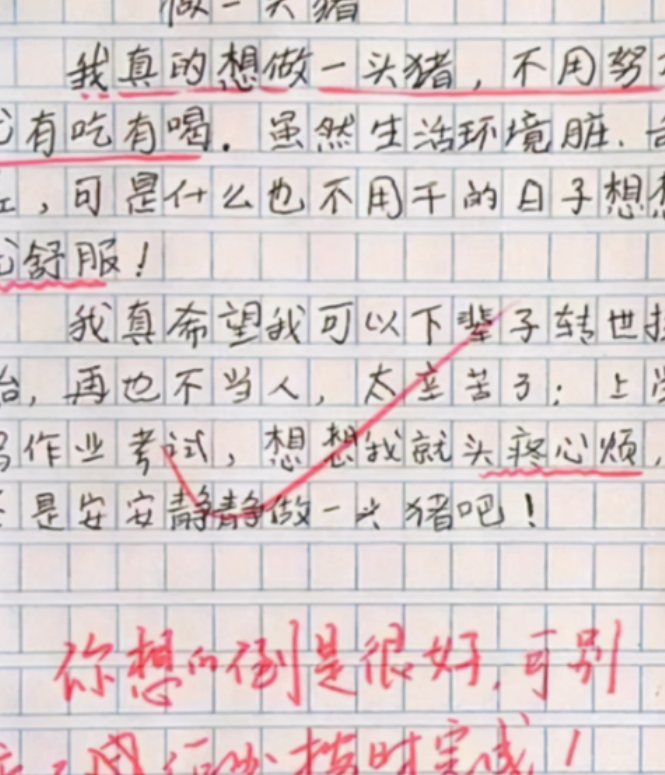 做一头猪
我真的想做一头猪，不用努
有吃有喝．虽然生活环境脏、
，可是什么也不用干的日子想
舒服！
我真希望我可以下辈子转世
胎，再也不当人，太辛苦了；上学
作业考试，想想我就头疼心烦，
是安安静静做一头猪吧！
你想的倒是很好，可别
按时完成！